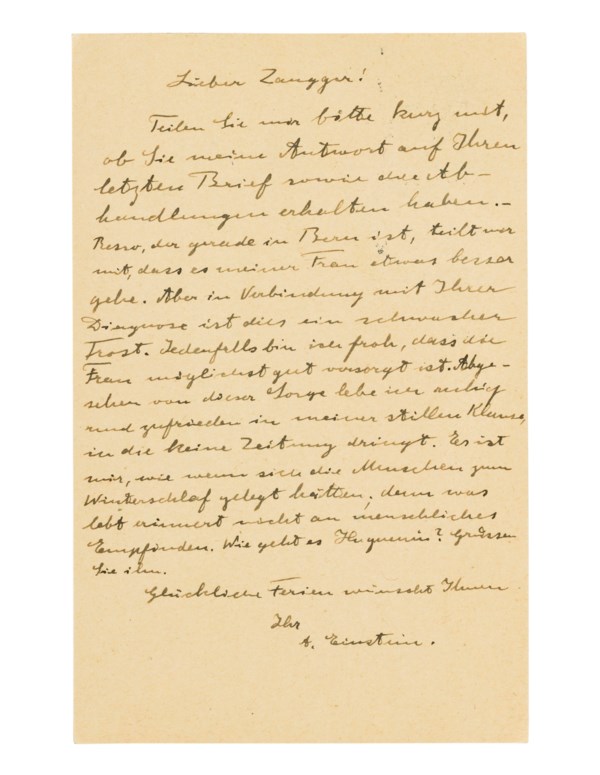 Lieber Zangger!
Teilen Sie mir bitte kurz mit,
ob Sie meine Antwort auf Ihren
letzten Brief sowie die Ab-
handlungen erhalten haben. –
Besso, der gerade in Bern ist, teilt mir
mit, dass es meiner Frau etwas besser
gehe. Aber in Verbindung mit Ihrer
Diagnose ist dies ein schwacher
Trost. Jedenfalls bin ich froh, dass die
Frau möglichst gut versorgt ist. Abge-
sehen von dieser Sorge lebe ich ruhig
und zufrieden in meiner stillen Klause,
in die keine Zeitung dringt. Es ist
mir, wie wenn sich die Menschen zum
Winterschlaf gelegt hätten; denn was
lebt erinnert nicht an menschliches
Empfinden. Wie geht es Huguenin? Grüssen
Sie ihn.
Glückliche Ferien wünscht Ihnen
Ihr
A. Einstein.